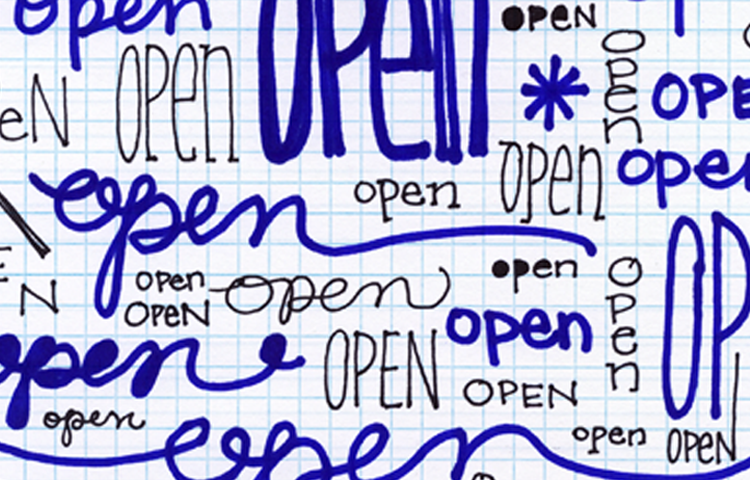 open
open
OPEN
eN
OPEN
open
OPE
open
open
OPEN
open
open
open
open
OPEN
open
OPEN
open
open
N
OP
open
OPEN
OPEN
open
open
OPEN
open